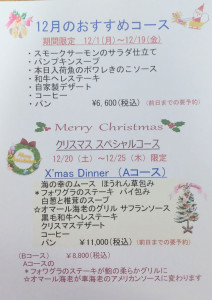 12月のおすすめコース
期間限定 12/1(月)～12/19(金)
・スモークサーモンのサラダ仕立て
・パンプキンスープ
・本日入荷魚のポワレきのこソース
・和牛ヘレステーキ
・自家製デザート
・コーヒー
・パン ¥6,600(税込)(前日までの要予約)
Merry Christmas
クリスマス スペシャルコース
12/20(土)～12/25(木)限定
X'mas Dinner (Aコース)
海の幸のムース ほうれん草包み
*フォワグラのステーキ パイ包み
白葱と帆茸のスープ
☆オマール海老のグリル サフランソース
黒毛和牛ヘレステーキ
クリスマスデザート
コーヒー
パン ¥11,000(税込)(前日までの要予約)
(Bコース) ¥8,800(税込)
Aコースの
*フォワグラのステーキが鮑の柔らかグリルに
☆オマール海老が車海老のアメリカンソースに変わります